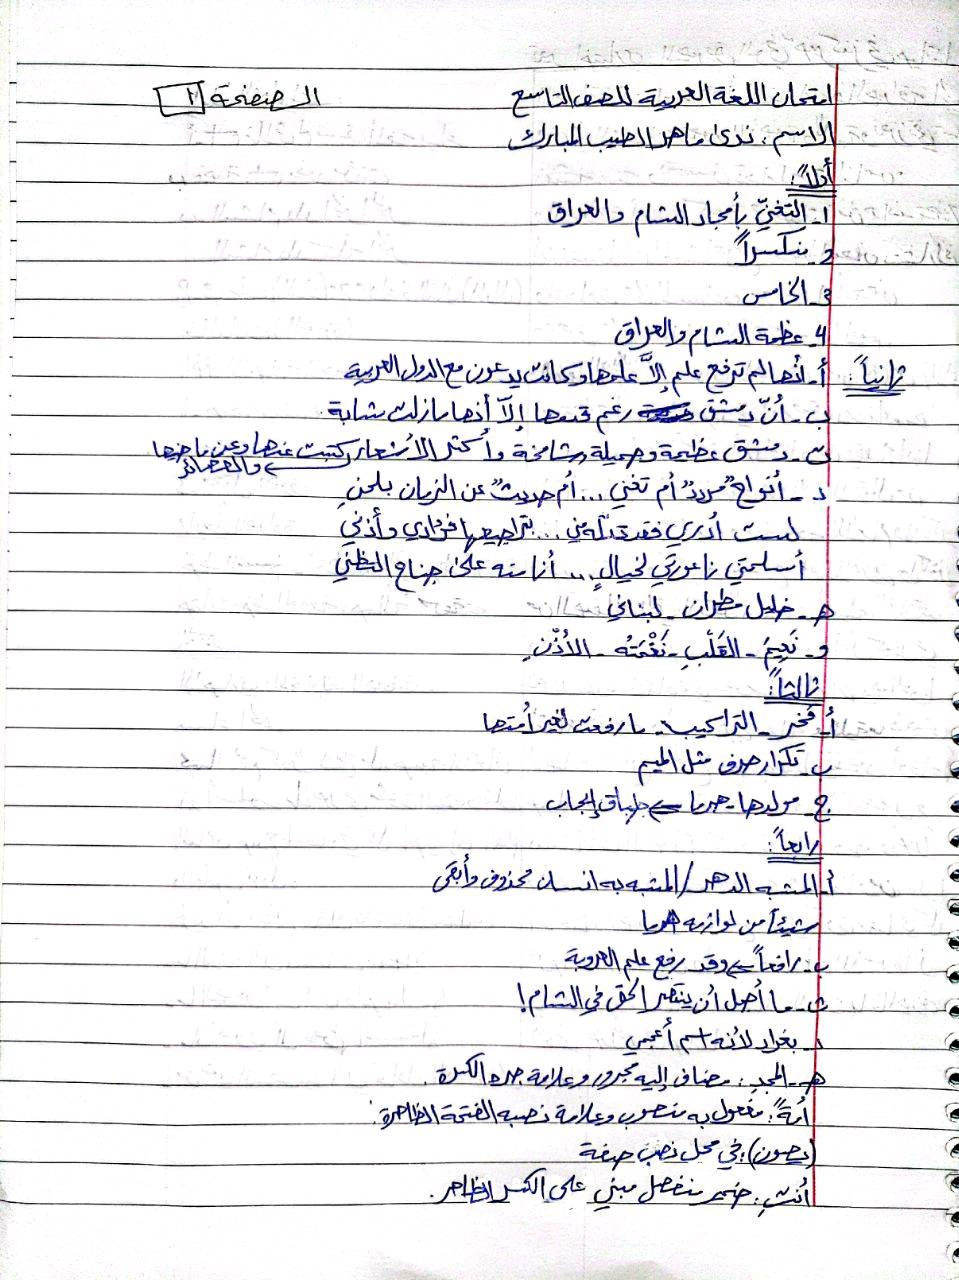 امتحان اللغة العربية للصف التاسع الصفحة ١
الاسم: ندى ماهر الطيب المبارك
أولاً:
١- التغنّي بأمجاد الشام والعراق
2- منكسراً
3- الخامس
4- عظمة الشام والعراق
ثانياً: أ- أنها لم ترفع علم إلاَّ علمها وكانت يدعون مع الدول العربية
ب- أنّ دمشق رغم قدمها إلاّ أنها مازلت شابة
ت- دمشق عظيمة وجميلة وشامخة وأكثر الأشعار كتبت عنها وعن ماضيها
والحضارة
د- أنواح "مردد" أم تغني ... أم حديث" عن الزمان بلحنِ
لست أدري فقد تدلّه مني ... بتراجيعها فؤادي وأذني
أسلمتني ناعورتي لخيالٍ ... أنا منه على جناح التظني
هـ- خليل مطران - لبناني
و- نَعِيمَ - القَلْبِ - نَغْمَتُه - الأُذْنِ
ثالثاً:
أ- فخر - التراكيب - ما رفعت لغير أمتها
ب- تكرار حرف مثل الميم
ج- مولدها - هرما => طباق إيجاب
رابعاً:
أ- المشبه الدهر / المشبه به انسان محذوف وأبقى
شيئاً من لوازمه هرما
ب- رافعاً => وقد رفع علم العروبة
ت- ما أجمل أن ينتصر الحق في الشام!
د- بغداد لأنه اسم أعجمي
هـ- المجدِ: مضاف إليه مجرور وعلامة جره الكسرة.
أمةً: مفعول به منصوب وعلامة نصبه الفتحة الظاهرة.
(يصون): في محل نصب صفة
أنتِ: ضمير منفصل مبني على الكسر الظاهر.